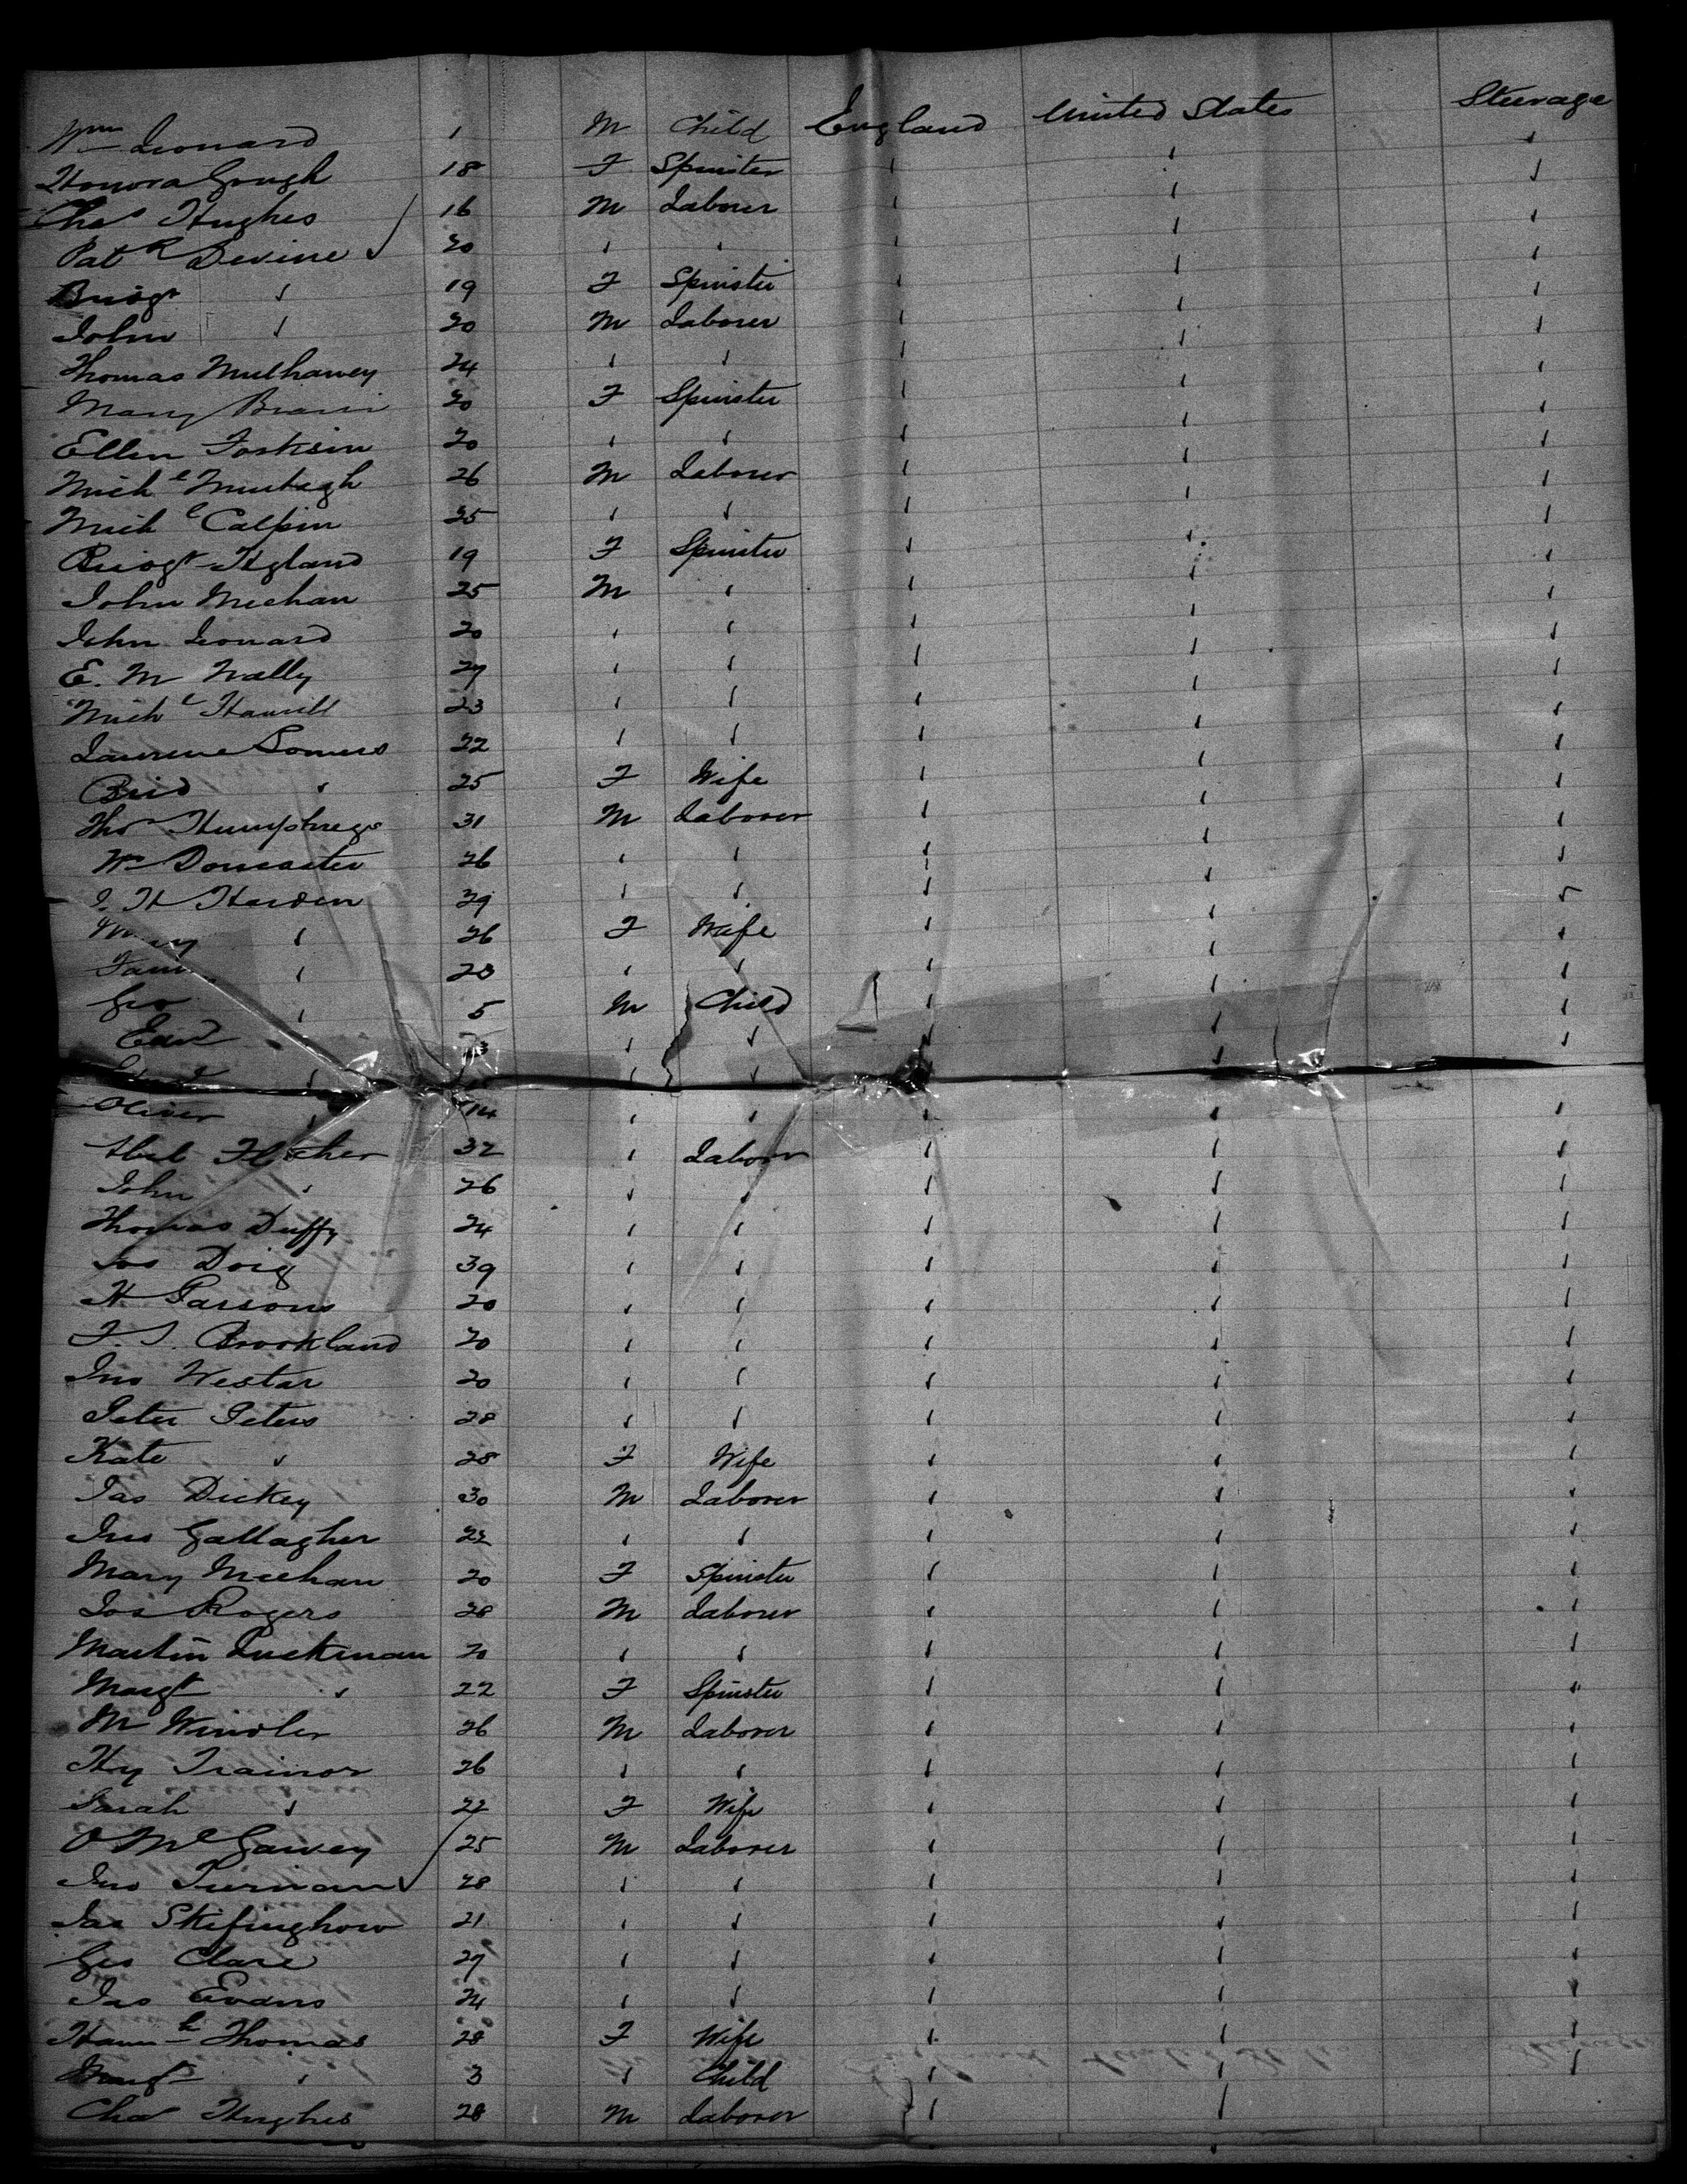 Wm Leonard 1 M Child England United States Steerage
Honora Gough 18 F Spinster " " "
Chas Hughes 16 M Laborer " " "
Patk Devine 20 " " " " "
Bridgt " 19 F Spinster " " "
John " 20 M Laborer " " "
Thomas Mulhaney 24 " " " " "
Mary 20 F Spinster " " "
Ellen 20 " " " " "
Michl Murtagh 26 M Laborer " " "
Michl Calpin 25 " " " " "
Bridgt Hyland 19 F Spinster " " "
John Meehan 25 M " " " "
John Leonard 20 " " " " "
E. M Nally 27 " " " " "
Michl 23 " " " " "
Lawrence Somers 22 " " " " "
Brid " 25 F Wife " " "
Thos Humphreys 31 M Laborer " " "
Wm Doncaster 26 " " " " "
J. H Harden 29 " " " " "
Mary " 26 F Wife " " "
" 28 " " " " "
Geo " 5 M Child " " "
Edwd " " " " "
" " " "
Oliver " " " " " "
Abel Fletcher 32 " Laborer " " "
John " 26 " " " " "
Thomas Duffy 24 " " " " "
Jos Doig 39 " " " " "
H Parsons 20 " " " " "
F. J. Brookland 20 " " " " "
Jno Westar 20 " " " " "
Peter Peters 28 " " " " "
Kate " 28 F Wife " " "
Jas Dickey 30 M Laborer " " "
Jno Gallagher 22 " " " " "
Mary Meehan 20 F Spinster " " "
Jos Rogers 28 M Laborer " " "
Martin Ruckman 20 " " " " "
Margt " 22 F Spinster " " "
M Windler 26 M Laborer " " "
Hy Trainor 26 " " " " "
Sarah " 22 F Wife " " "
O McGarvey 25 M Laborer " " "
Jno 28 " " " " "
Jas Skifinghow 21 " " " " "
Geo Clare 27 " " " " "
Jas Evans 24 " " " " "
Hannh Thomas 28 F Wife " " "
Margt " 3 " Child " " "
Chas Hughes 28 M Laborer " "